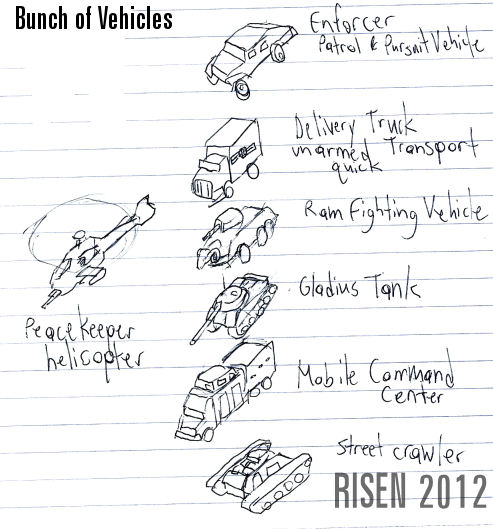 Bunch of Vehicles
Enforcer
Patrol & Pursuit Vehicle
Delivery Truck
unarmed Transport
quick
Ram Fighting Vehicle
Gladius Tank
Peacekeeper
helicopter
Mobile Command
Center
Street crawler
RISEN 2012